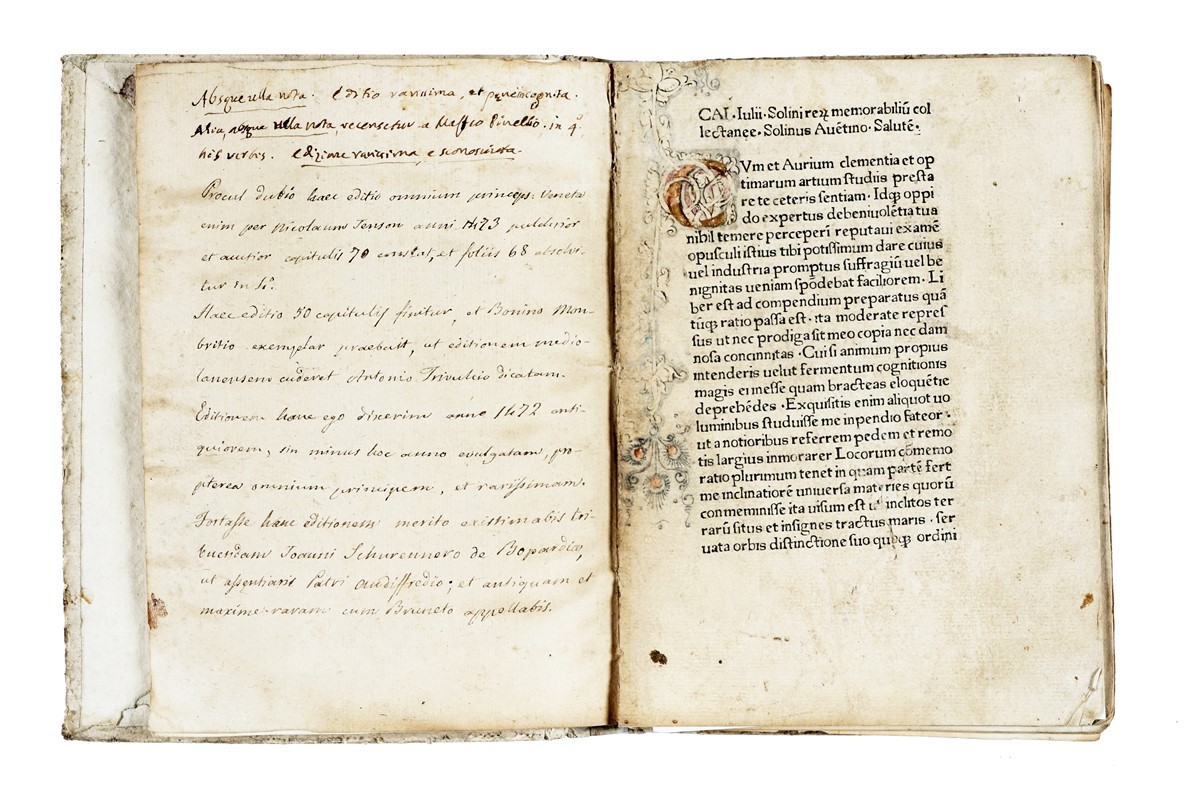 Absque ulla nota. Editio rarissima, et pene incognita.
Alia, absque ulla nota, recensetur a Maffeo Pinellio. in 4.º
his verbis. edizione rarissima e sconosciuta.
Procul dubio haec editio omnium princeps: Veneta
enim per Nicolaum Jenson anni 1473 pulchrior
et auctior capitulis 70 constat, et foliis 68 absolvi-
tur in 4.º
Haec editio 50 capitulis finitur, et Bonino Mom-
britio exemplar praebuit, ut editionem medio-
lanensem cuderet Antonio Trivulcio dicatam.
Editionem hanc ego dixerim anno 1472 anti-
quiorem, sin minus hoc anno evulgatam, pro-
pterea omnium principem, et rarissimam.
Fortasse hanc editionem merito existimabis tri-
buendam Joanni Schurennero de Bopardia,
ut assentiaris Patri Audiffredio; et antiquam et
maxime raram cum Bruneto appellabis.
CAI. Iulii. Solini reꝝ memorabiliū col
lectanee. Solinus Auētino. Salutē.
Vm et Aurium clementia et op
timarum artium studiis presta
re te ceteris sentiam. Idqꝫ oppi
do expertus debeniuolētia tua
nibil temere perceperi reputaui examē
opusculi istius tibi potissimum dare cuius
uel industria promptus suffragiū uel be
nignitas ueniam spōdebat faciliorem. Li
ber est ad compendium preparatus quā
tūqꝫ ratio passa est. ita moderate repres
sus ut nec prodiga sit meo copia nec dam
nosa concinnitas. Cui si animum propius
intenderis uelut fermentum cognitionis
magis ei inesse quam bracteas eloquētie
deprehēdes. Exquisitis enim aliquot uo
luminibus studuisse me inpendio fateor.
ut a notioribus referrem pedem et remo
tis largius inmorarer Locorum cōmemo
ratio plurimum tenet in quam partē fert
me inclinatiorē uniuersa materies quorū
conmeminisse ita uisum est ut inclitos ter
rarū situs et insignes tractus maris. ser
uata orbis distinctione suo quoqꝫ ordini